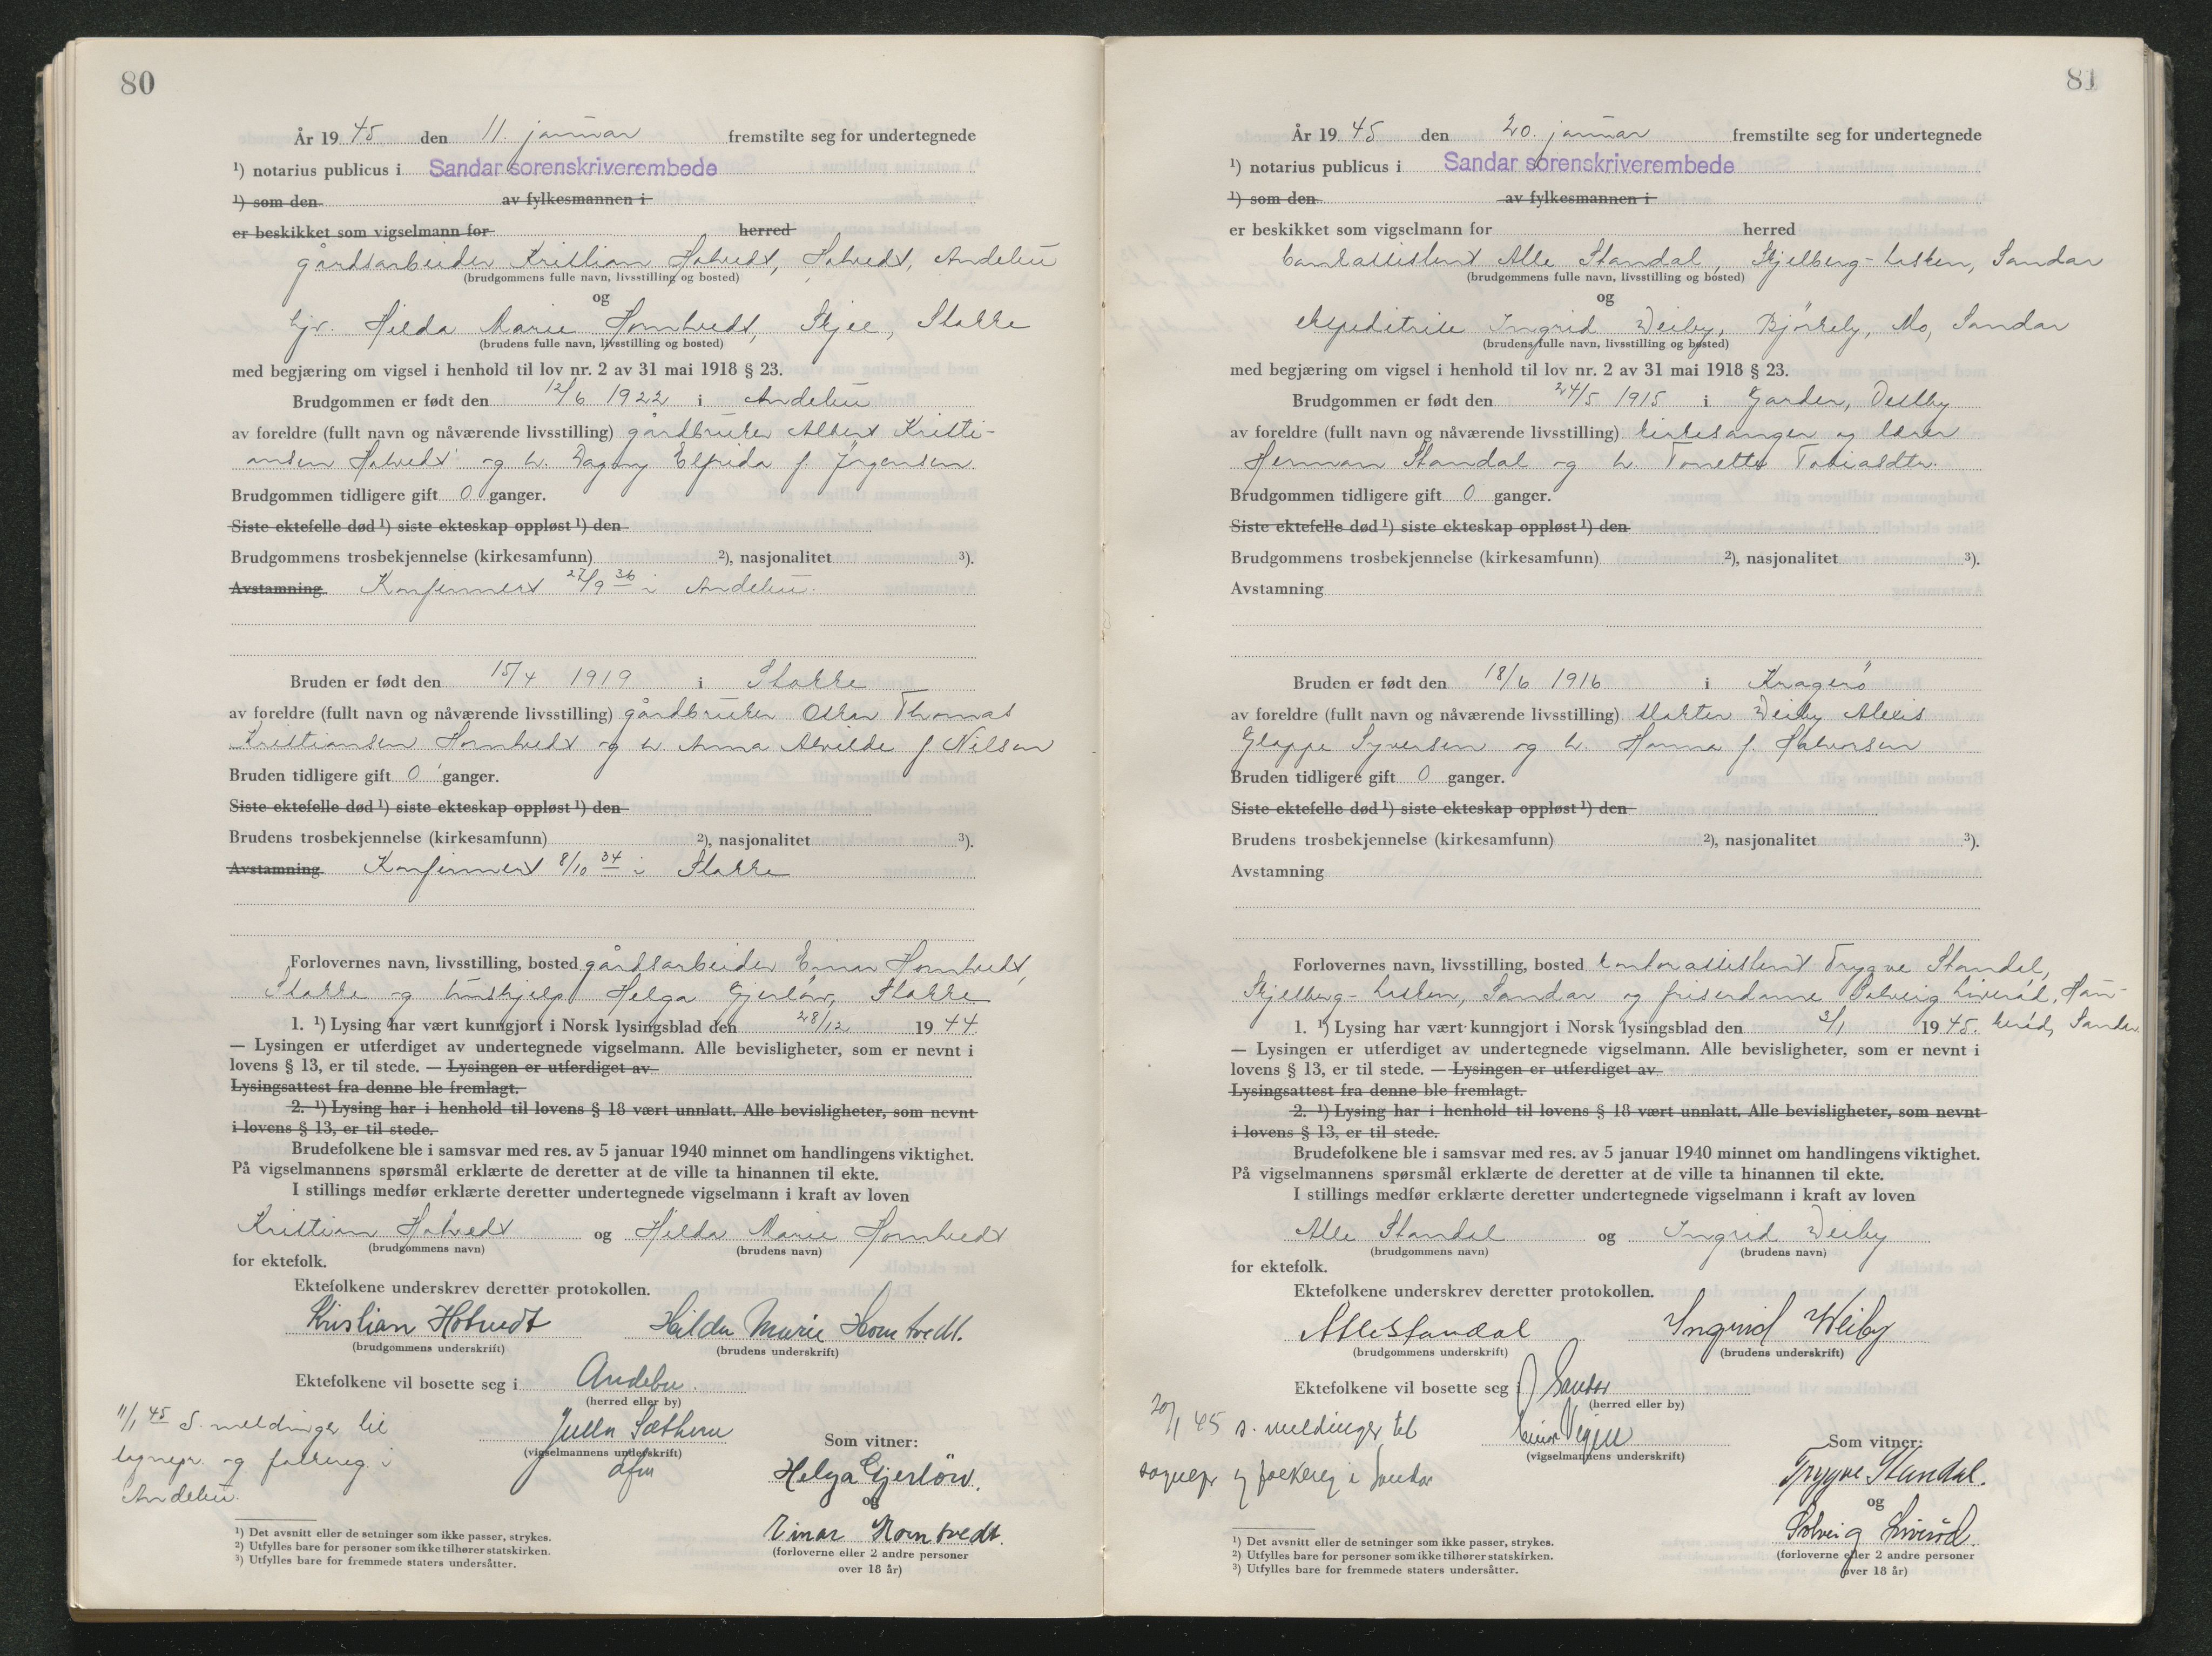 80
År 19 45 den 11. januar fremstilte seg for undertegnede
¹) notarius publicus i Sandar sorenskriverembede
¹) som den av fylkesmannen i
er beskikket som vigselmann for herred
gårdsarbeider Kristian Hotvedt, Hotvedt, Andebu
(brudgommens fulle navn, livsstilling og bosted)
og
hjv. Hilda Marie Horntvedt, Skjee, Stokke
(brudens fulle navn, livsstilling og bosted)
med begjæring om vigsel i henhold til lov nr. 2 av 31 mai 1918 § 23.
Brudgommen er født den 12/6 1922 i Andebu
av foreldre (fullt navn og nåværende livsstilling) gårdbruker Albert Kristi-
ansen Hotvedt og h. Dagny Elfrida f. Jörgensen.
Brudgommen tidligere gift 0 ganger.
Siste ektefelle død ¹) siste ekteskap oppløst ¹) den
Brudgommens trosbekjennelse (kirkesamfunn) ²), nasjonalitet ³).
Avstamning Konfirmert 27/9 36 i Andebu.
Bruden er født den 15/4 1919 i Stokke
av foreldre (fullt navn og nåværende livsstilling) gårdbruker Oskar Thomas
Kristiansen Horntvedt og h. Anna Alvilde f. Nilsen
Bruden tidligere gift 0 ganger.
Siste ektefelle død ¹) siste ekteskap oppløst ¹) den
Brudens trosbekjennelse (kirkesamfunn) ²), nasjonalitet ³).
Avstamning Konfirmert 8/10 34 i Stokke
Forlovernes navn, livsstilling, bosted gårdsarbeider Einar Horntvedt,
Stokke og hushjelp Helga Gjerlöv, Stokke
1. ¹) Lysing har vært kunngjort i Norsk lysingsblad den 28/12 19 44.
— Lysingen er utferdiget av undertegnede vigselmann. Alle bevisligheter, som er nevnt i
lovens § 13, er til stede. — Lysingen er utferdiget av
Lysingsattest fra denne ble fremlagt.
2. ¹) Lysing har i henhold til lovens § 18 vært unnlatt. Alle bevisligheter, som nevnt
i lovens § 13, er til stede.
Brudefolkene ble i samsvar med res. av 5 januar 1940 minnet om handlingens viktighet.
På vigselmannens spørsmål erklærte de deretter at de ville ta hinannen til ekte.
I stillings medfør erklærte deretter undertegnede vigselmann i kraft av loven
Kristian Hotvedt og Hilda Marie Horntvedt
(brudgommens navn) (brudens navn)
for ektefolk.
Ektefolkene underskrev deretter protokollen.
Kristian Hotvedt Hilda Marie Horntvedt.
(brudgommens underskrift) (brudens underskrift)
Ektefolkene vil bosette seg i Andebu.
(herred eller by)
11/1 45 S. meldinger til
sognepr. og folkereg. i
Andebu.
(vigselmannens underskrift)
Som vitner:
Helga Gjerlöw.
og
Einar Horntvedt.
(forloverne eller 2 andre personer
over 18 år)
¹) Det avsnitt eller de setninger som ikke passer, strykes.
²) Utfylles bare for personer som ikke tilhører statskirken.
³) Utfylles bare for fremmede staters undersåtter.
81
År 19 45 den 20. januar fremstilte seg for undertegnede
¹) notarius publicus i Sandar sorenskriverembede
¹) som den av fylkesmannen i
er beskikket som vigselmann for herred
bankassistent Atle Standal, Skjelberg-Lasken, Sandar
(brudgommens fulle navn, livsstilling og bosted)
og
ekspeditrise Ingrid Weiby, Björkely, Mo, Sandar
(brudens fulle navn, livsstilling og bosted)
med begjæring om vigsel i henhold til lov nr. 2 av 31 mai 1918 § 23.
Brudgommen er født den 24/5 1915 i Garder, Vestby
av foreldre (fullt navn og nåværende livsstilling) kirkesanger og lærer
Herman Standal og h. Tonette Tobiasdtr.
Brudgommen tidligere gift 0 ganger.
Siste ektefelle død ¹) siste ekteskap oppløst ¹) den
Brudgommens trosbekjennelse (kirkesamfunn) ²), nasjonalitet ³).
Avstamning
Bruden er født den 18/6 1916 i Kragerö
av foreldre (fullt navn og nåværende livsstilling) slakter Weiby Alexis
Gloppe Syversen og h. Hanna f. Halvorsen
Bruden tidligere gift 0 ganger.
Siste ektefelle død ¹) siste ekteskap oppløst ¹) den
Brudens trosbekjennelse (kirkesamfunn) ²), nasjonalitet ³).
Avstamning
Forlovernes navn, livsstilling, bosted kontorassistent Trygve Standal,
Skjelberg-Lasken, Sandar og friserdame Solveig Liveröd, Hau-
1. ¹) Lysing har vært kunngjort i Norsk lysingsblad den 3/1 19 45. keröd, Sandar.
— Lysingen er utferdiget av undertegnede vigselmann. Alle bevisligheter, som er nevnt i
lovens § 13, er til stede. — Lysingen er utferdiget av
Lysingsattest fra denne ble fremlagt.
2. ¹) Lysing har i henhold til lovens § 18 vært unnlatt. Alle bevisligheter, som nevnt
i lovens § 13, er til stede.
Brudefolkene ble i samsvar med res. av 5 januar 1940 minnet om handlingens viktighet.
På vigselmannens spørsmål erklærte de deretter at de ville ta hinannen til ekte.
I stillings medfør erklærte deretter undertegnede vigselmann i kraft av loven
Atle Standal og Ingrid Weiby
(brudgommens navn) (brudens navn)
for ektefolk.
Ektefolkene underskrev deretter protokollen.
Atle Standal Ingrid Weiby
(brudgommens underskrift) (brudens underskrift)
Ektefolkene vil bosette seg i Sandar
(herred eller by)
20/1 45 s. meldinger til
sognepr og folkereg i Sandar
(vigselmannens underskrift)
Som vitner:
Trygve Standal.
og
Solveig Liveröd.
(forloverne eller 2 andre personer
over 18 år)
¹) Det avsnitt eller de setninger som ikke passer, strykes.
²) Utfylles bare for personer som ikke tilhører statskirken.
³) Utfylles bare for fremmede staters undersåtter.